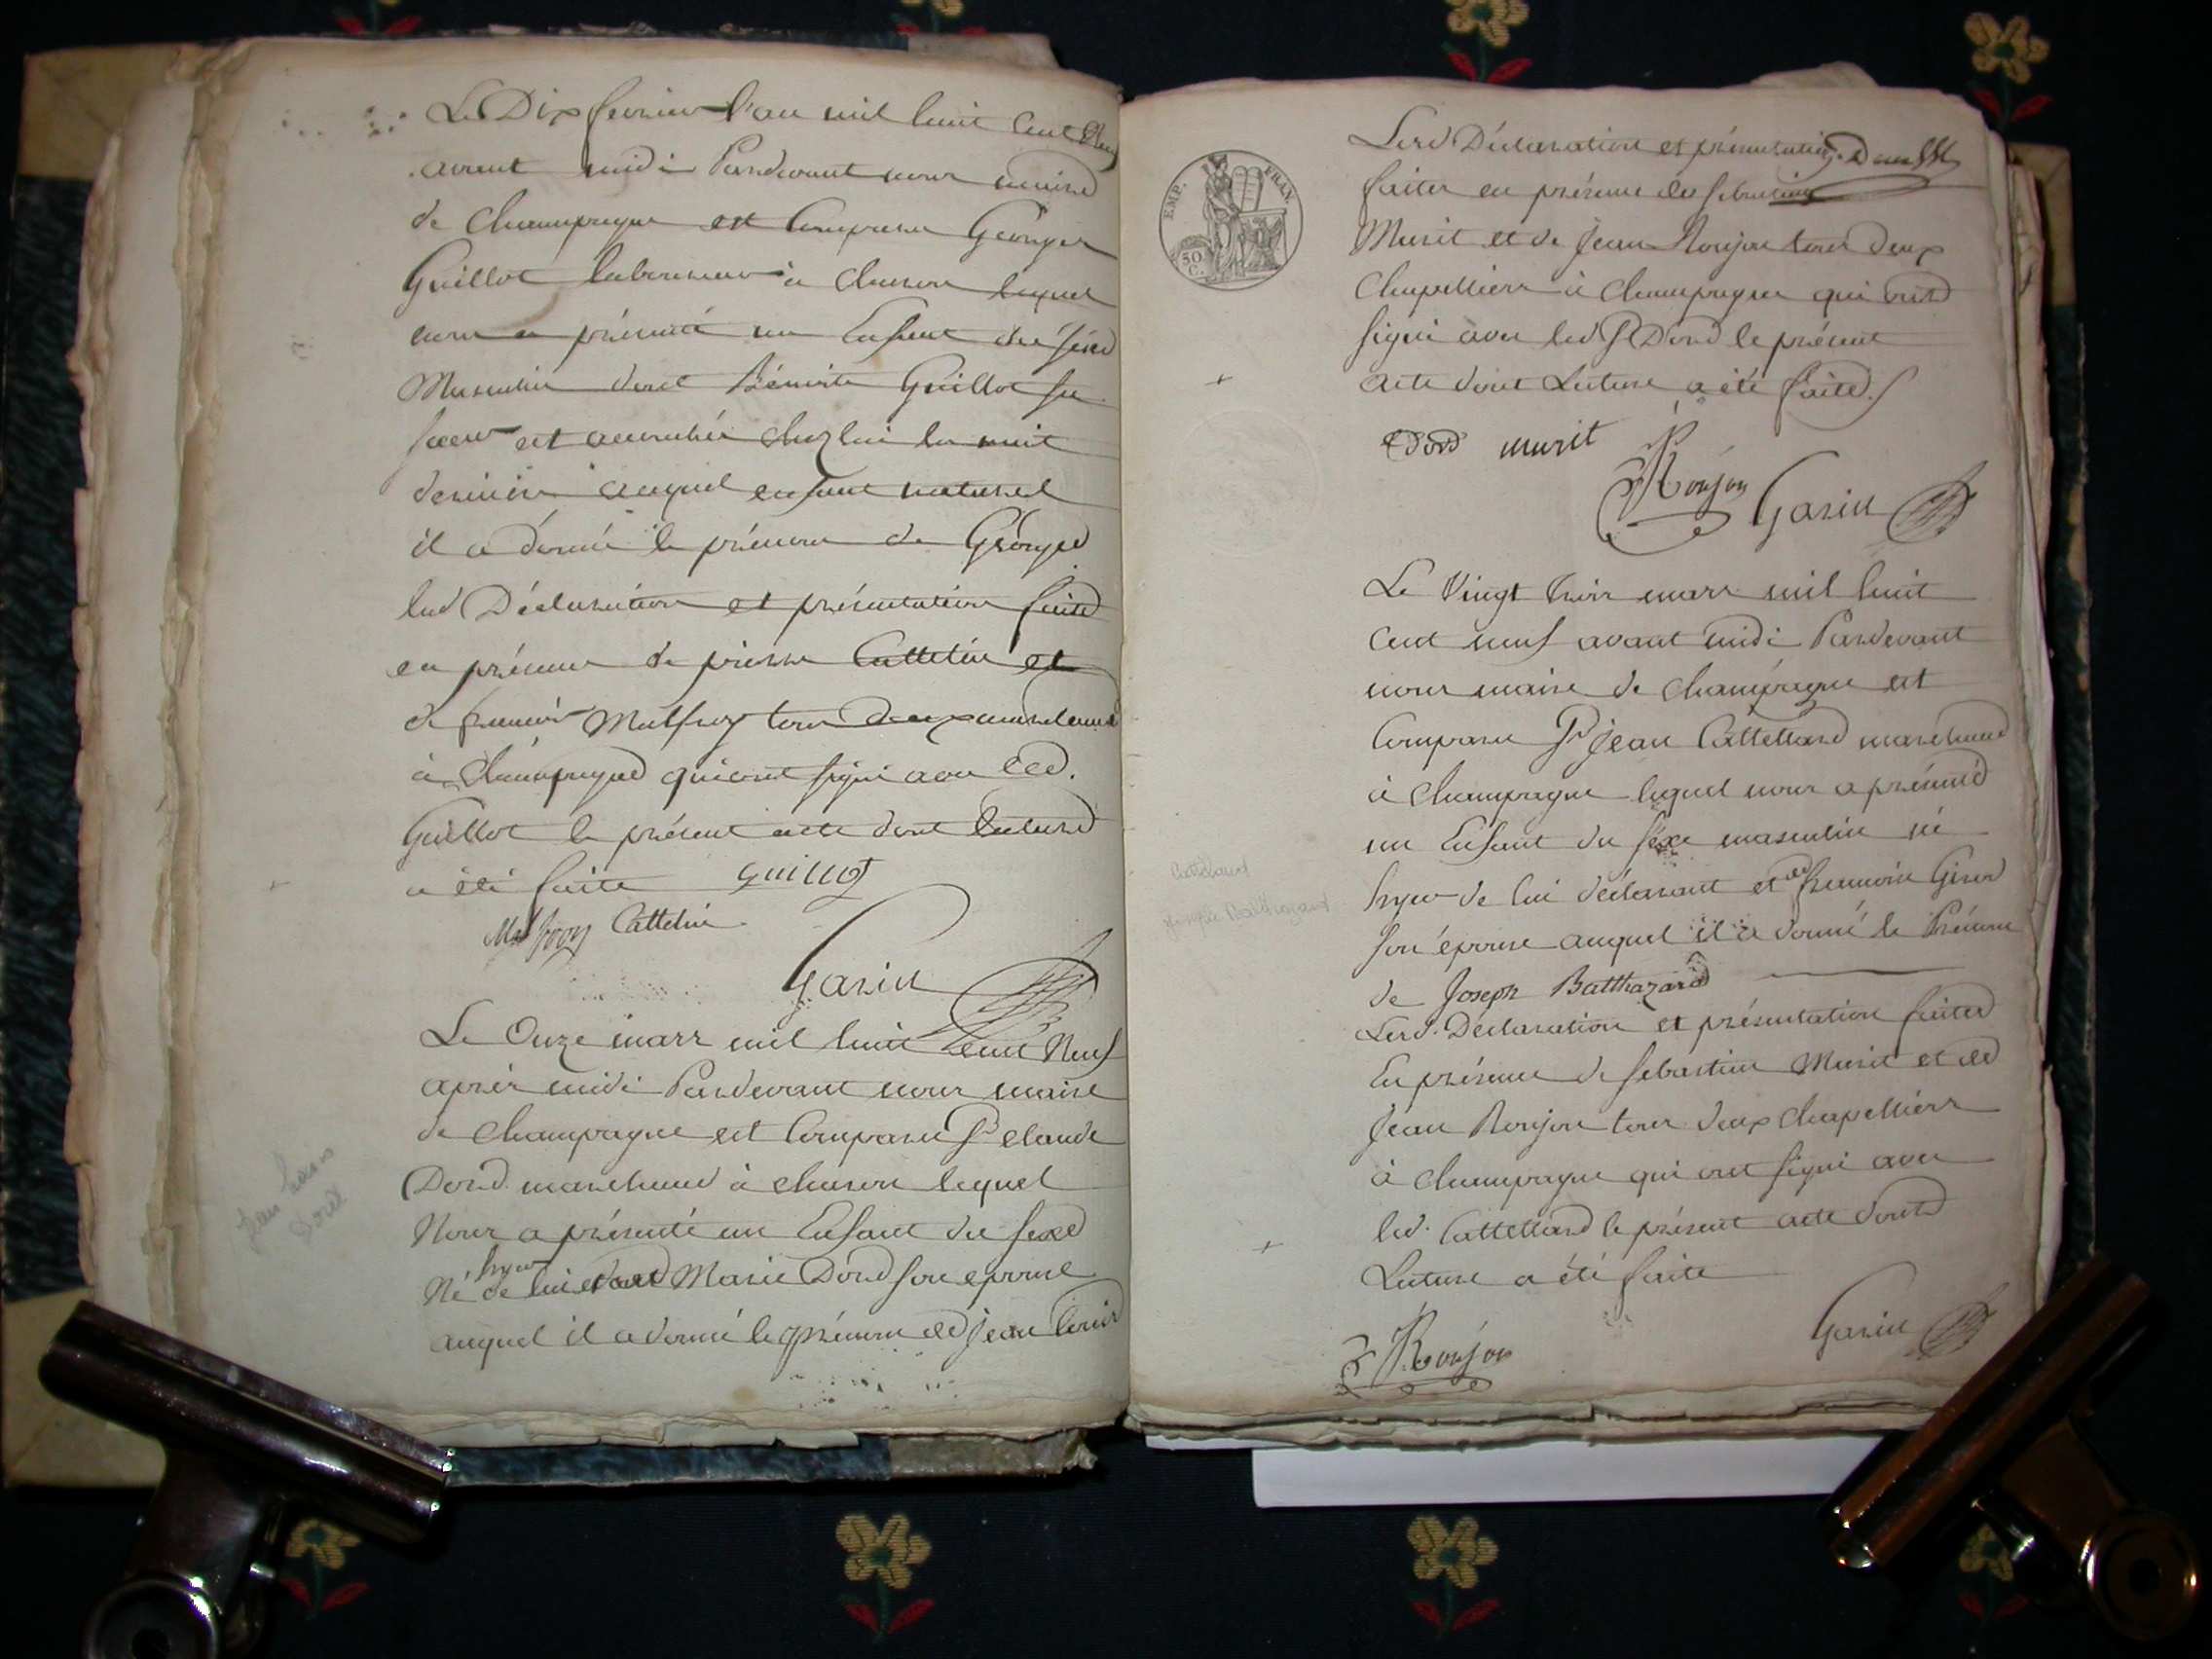 Le Dix fevrier l'an mil huit cent Neuf
avant midi Pardevant nous maire
de Champagne est Comparu Georges
Guillot laboureur à Chuson lequel
nous a présenté un Enfant du séxe
Masculin dont Bénoite Guillot sa
soeur est accouchée chez lui la nuit
derniere auquel enfant naturel
il a donné le prénom de Géorges
lesd Déclaration et présentation faites
en présence de pierre Cattelin et
de Mulfroy tous deux marchands
à Champagne qui ont signé avec led.
Guillot le présent acte dont lecture
a été faite Guillot
Cattelin
Garin
Le Onze mars mil huit cent Neuf
après midi Pardevant nous maire
de Champagne est Comparu Sr Claude
Dord marchand à Chuson lequel
Nous a présenté un Enfant du sexe
Né hyer de lui et de Marie Dord son epouse
auquel il a donné le prénom de Jean Louis
Jean Louis
Dord
EMP. FRAN.
50 C.
Lesd Déclaration et présentation
faites en présence de Sebastien
Murit et de Jean Roujon tous deux
Chapelliers à Champagne qui ont
signé avec led Sr Dord le présent
acte dont Lecture a été faite
Dord murit
Roujon Garin
Le Vingt trois mars mil huit
cent neuf avant midi Pardevant
nous maire de Champagne est
Comparu Sr Jean Cattelland marchand
à Champagne lequel nous a présenté
un Enfant du sexe masculin né
hyer de lui déclarant et de
son épouse auquel il a donné le Prénom
de Joseph Balthazard
Lesd. Déclaration et présentation faites
En présence de Sebastien Murit et de
Jean Roujon tous deux Chapelliers
à Champagne qui ont signé avec
led. Cattelland le présent acte dont
Lecture a été faite
Garin
Roujon